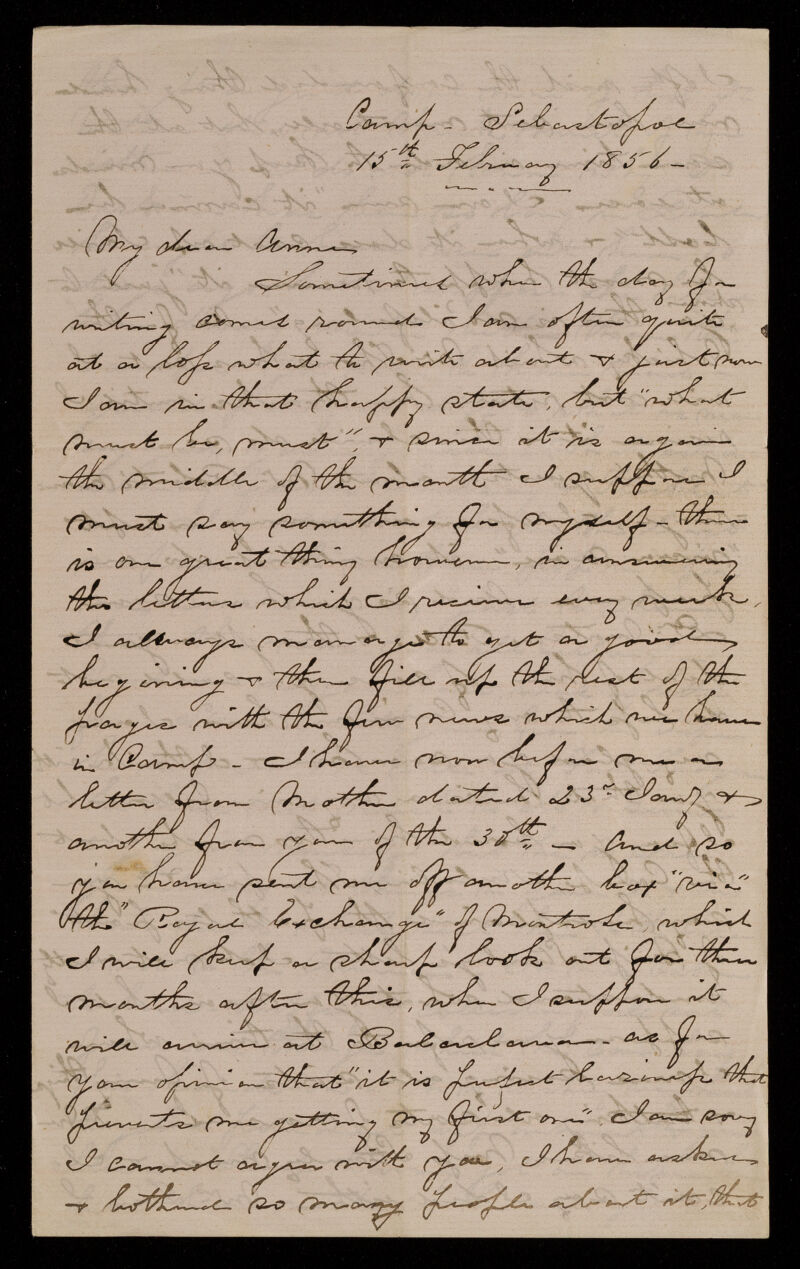 Camp - Sebastopol
15th February 1856 -
My dear Anne
Sometimes when the day for
writing comes round I am often quite
at a loss what to write about & just now
I am in that happy state, but "what
must be, must", & since it is again
the middle of the month I suppose I
must say something for myself - there
is one great thing however, in answering
the letters which I receive every week,
I always manage to get a good
begining & then fill up the rest of the
pages with the few news which we have
in Camp - I have now before me a
letter from Mother dated 23rd Jany &
another from you of the 30th - and so
you have sent me off another box "via"
the "Royal Exchange" of Montrose, which
I will keep a sharp look out for three
months after this, when I suppose it
will arrive at Balaclava - as for
your opinion that "it is perfect laziness that
prevents me getting my first one" I am sorry
I cannot agree with you, I have asked
& bothered so many people about it, that